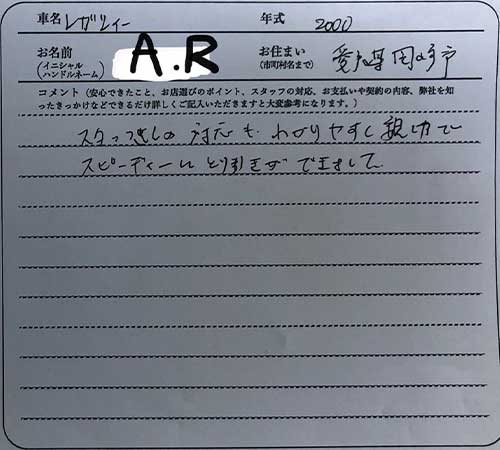 車名 レガシィー 年式 2000
お名前 (イニシャル ハンドルネーム) A.R お住まい (市町村名まで) 愛知県岡崎市
コメント（安心できたこと、お店選びのポイント、スタッフの対応、お支払いや契約の内容、弊社を知
ったきっかけなどできるだけ詳しくご記入いただきますと大変参考になります。）
スタッフさんの対応も わかりやすく親切で
スピーディーに とり引きが できました